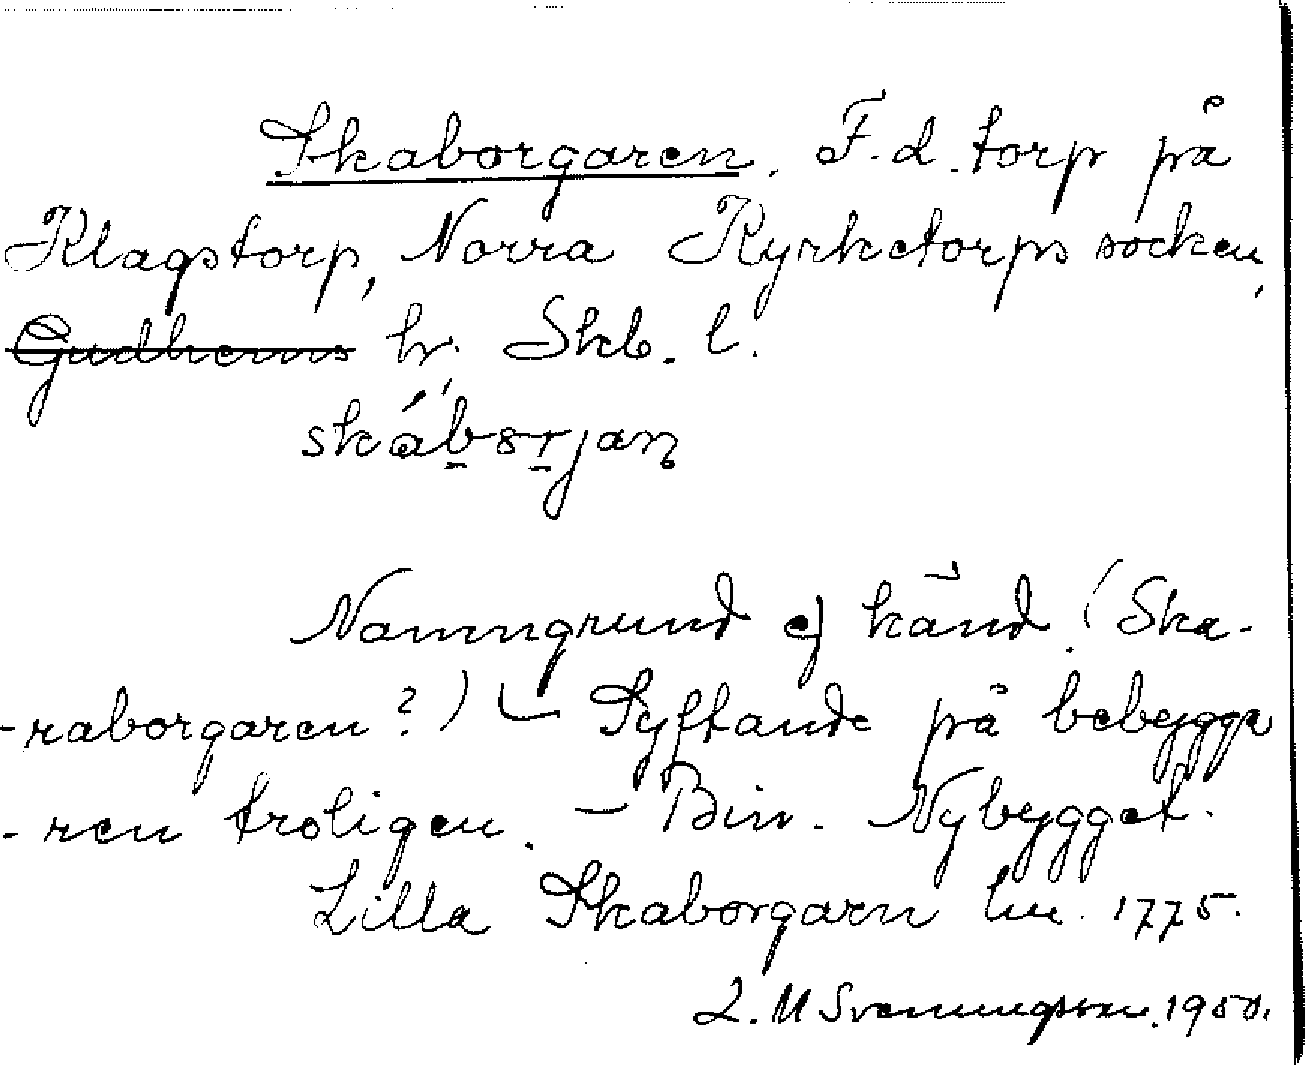 Skaborgaren. F.d. torp på
Klagstorp, Norra Kyrketorps socken,
Gudhems hr. Skb. l.
Namngrund ej känd. (Ska-
-raborgaren?) — Syftande på bebygga
-ren troligen. — Bin. Nybygget.
Lilla Skaborgarn hu. 1775.
L. M Svenungsson. 1950.